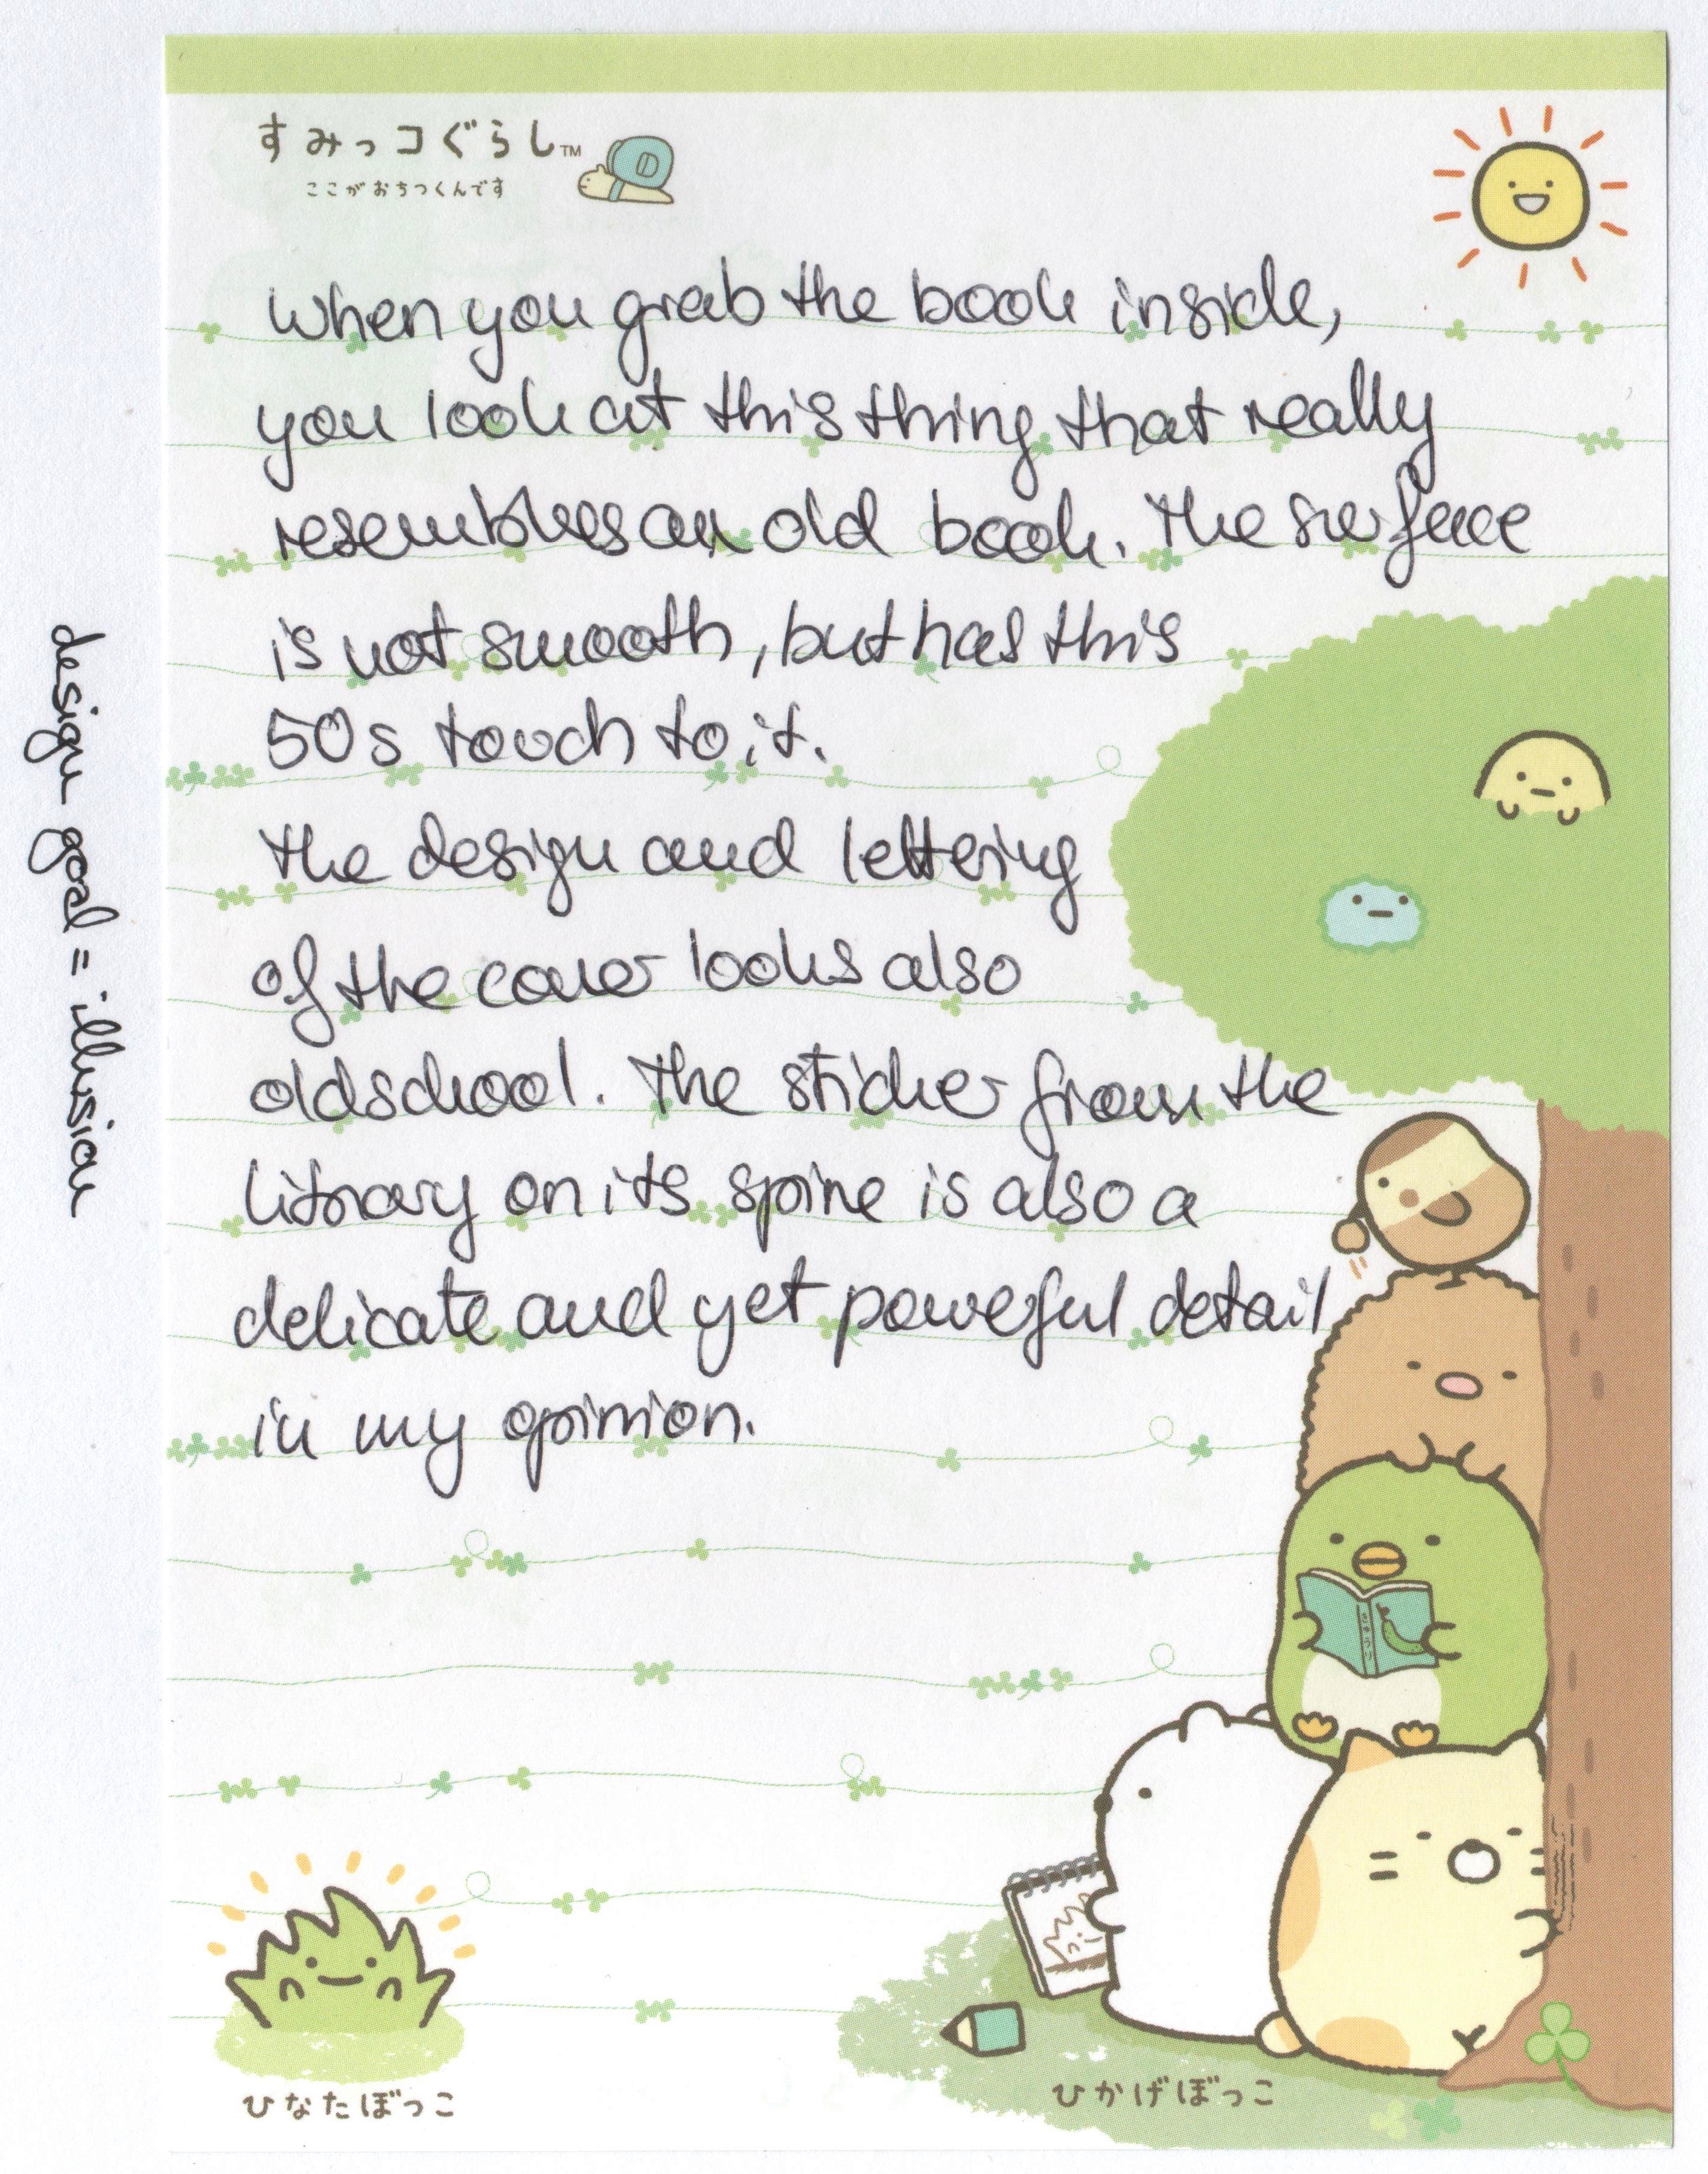 すみっコぐらし™
ここがおちつくんです
When you grab the book inside,
you look at this thing that really
resembles an old book. The surface
is not smooth, but has this
50s touch to it.
The design and lettering
of the cover looks also
oldschool. The sticker from the
library on its spine is also a
delicate and yet powerful detail
in my opinion.
design goal = illusion
ひなたぼっこ
ひかげぼっこ